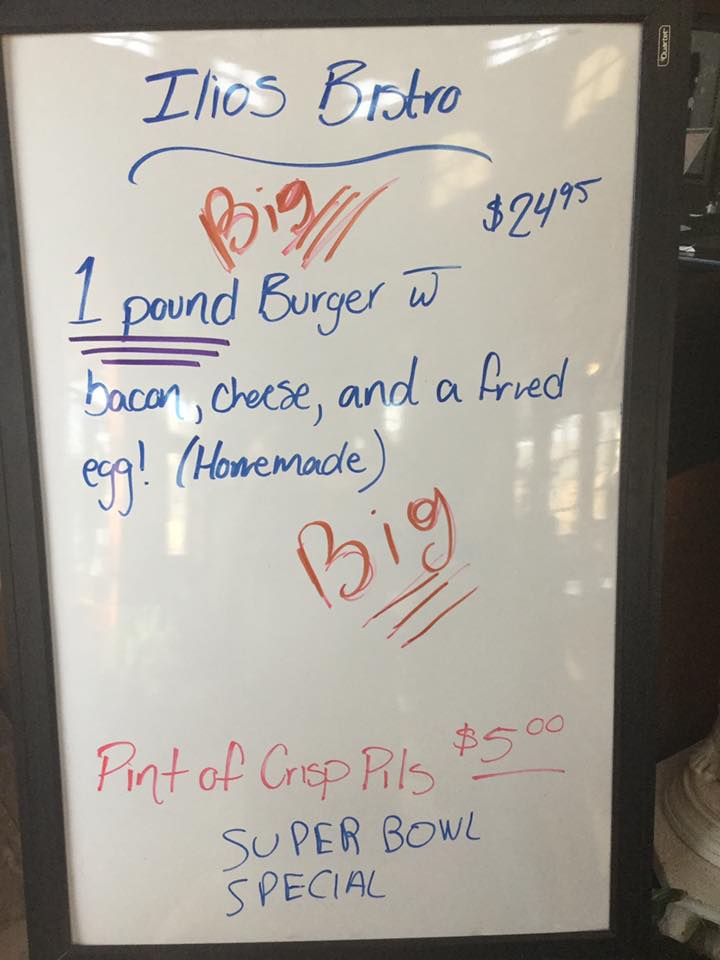 Quartet
Ilios Bistro
Big
$24.95
1 pound Burger w̅
bacon, cheese, and a fried
egg! (Homemade)
Big
Pint of Crisp Pils $5.00
SUPER BOWL
SPECIAL